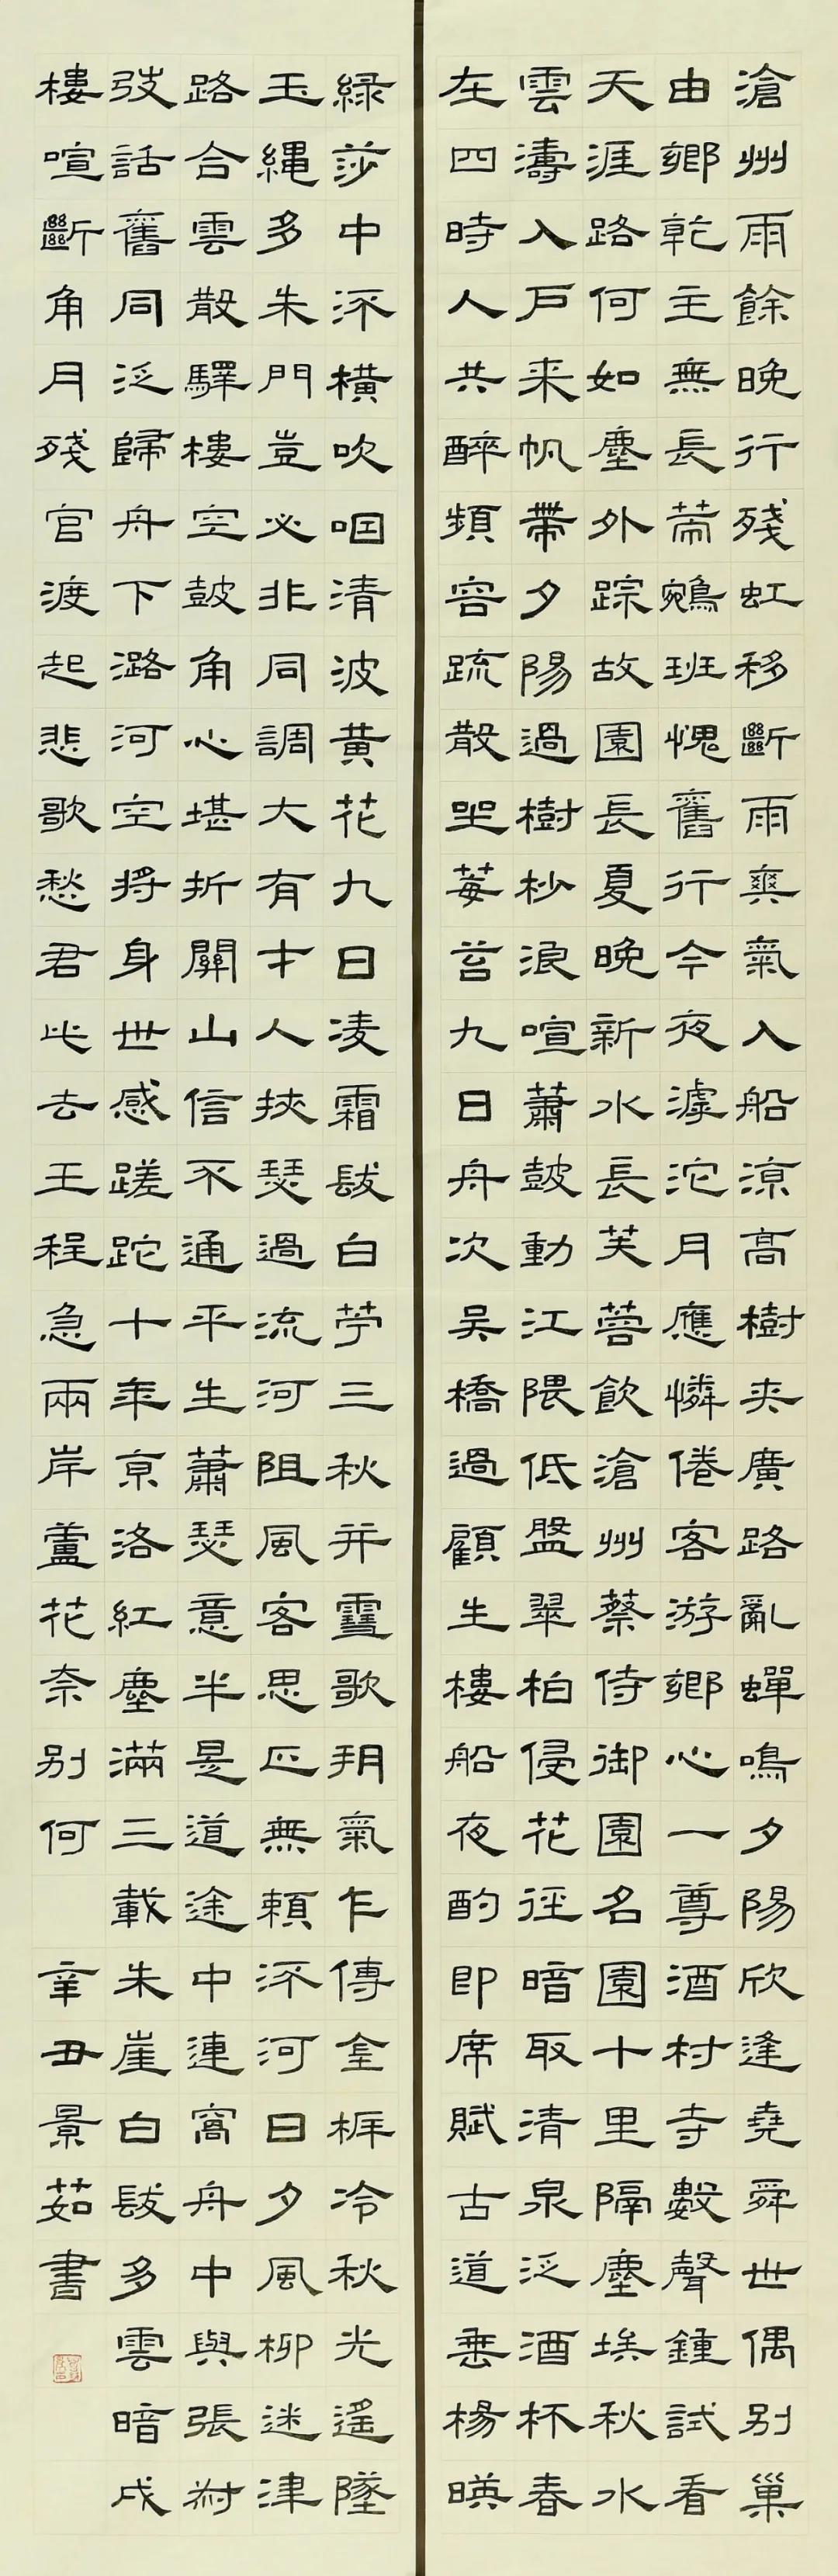 滄州雨餘晚行殘虹移斷雨爽氣入船涼高樹夾廣路亂蟬鳴夕陽欣逢堯舜世偶別巢
由鄉報主無長策鵷班愧舊行今夜滹沱月應憐倦客游鄉心一尊酒村寺數聲鍾試看
天涯路何如塵外踪故園長夏晚新水長芙蓉飲滄州蔡侍御園名園十里隔塵埃秋水
雲濤入戶来帆帶夕陽過樹杪浪喧蕭鼓動江隈低盤翠柏侵花徑暗取清泉泛酒杯春
在四時人共醉頻容疏散坐莓苔九日舟次吳橋過顧生樓船夜酌即席賦古道垂楊暎
綠莎中泝橫吹咽清波黃花九日凌霜鬢白苧三秋并雪歌朔氣乍傳金柝冷秋光遙墜
玉繩多朱門豈必非同調大有才人挾瑟過流河阻風客思正無賴泝河日夕風柳迷津
路合雲散驛樓空鼓角心堪折關山信不通平生蕭瑟意半是道途中連窩舟中與張尉
弢話舊同泛歸舟下潞河空將身世感蹉跎十年京洛紅塵滿三載朱崖白鬢多雲暗戍
樓喧斷角月殘官渡起悲歌愁君此去王程急兩岸蘆花奈別何
辛丑景茹書